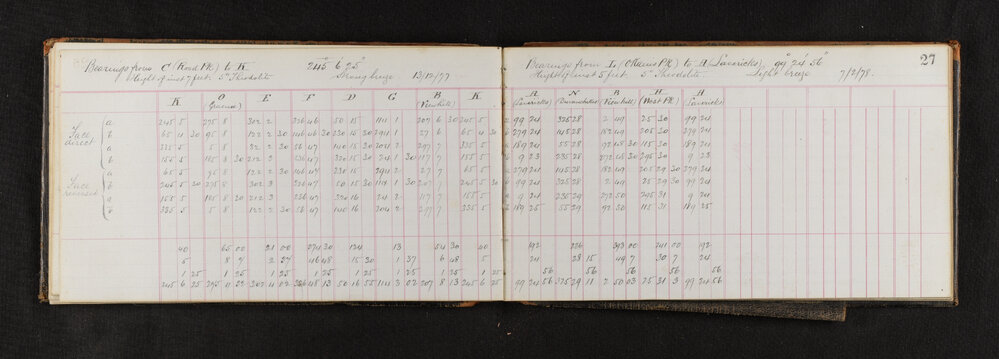 Bearings from C (Road Pk) to K 245° 6' 25"
Height of inst 7 feet. 5" Theodolite Strong breeze 13/12/77
K O E F D G B K
(Gracana) (Viewhill)
Face direct
a 245 5 275 8 302 2 226 46 50 15 114 1 207 6 30 245 5
b 65 4 30 95 8 122 2 30 146 46 30 230 15 30 294 1 27 6 65 4 30
a 335 5 5 8 32 2 30 56 47 140 15 30 204 2 297 7 335 5
b 155 5 185 8 30 212 2 236 47 320 15 30 24 1 30 117 7 155 5
Face reversed
a 65 5 95 8 122 2 30 146 47 230 15 294 2 27 7 65 5
b 245 5 30 275 8 302 3 326 47 50 15 30 114 1 30 207 7 245 5 30
a 155 5 185 8 30 212 3 236 47 320 16 24 2 117 7 155 5
b 335 5 5 8 122 2 30 56 47 140 16 204 2 297 7 335 5
40 65 00 21 00 374 30 124 13 54 30 40
5 8 7 2 37 46 48 15 30 1 37 6 48 5
1 25 1 25 1 25 1 25 1 25 1 25 1 25 1 25
245 6 25 302 4 02 326 48 13 50 16 55 114 3 02 207 8 13 245 6 25
27
Bearings from L (Rems Pk) to A (Lavericks) 99° 24' 56"
Height of inst 5 feet. 5" Theodolite Light breeze 7/2/78.
A N B H A
(Lavericks) (Viewhill) (West Pk) (Lavericks)
a 99 24 325 28 2 49 25 30 99 24
b 279 24 145 28 182 49 205 30 279 24
a 189 24 55 28 92 48 30 115 30 189 24
b 9 23 235 28 272 48 30 295 30 9 23
a 279 24 145 28 182 49 205 29 30 279 24
b 99 24 325 28 2 49 25 29 30 99 24
a 9 24 235 29 272 50 295 31 9 24
b 189 25 55 29 92 50 115 31 189 25
192 226 393 00 241 00 192
24 28 15 49 7 30 7 24
56 56 56 56 56
99 24 56 325 29 11 2 50 03 25 31 3 99 24 56